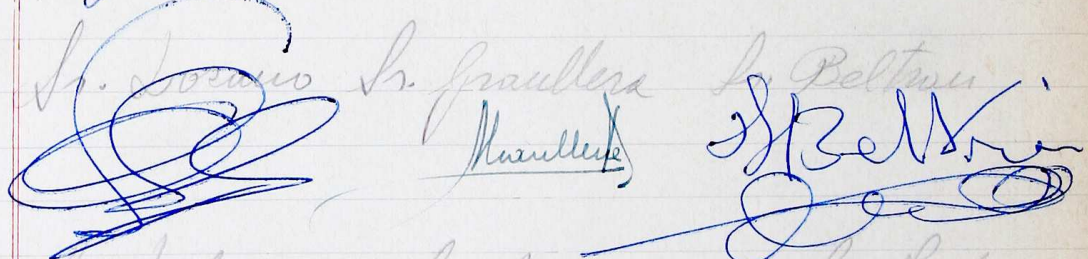 Sr. Lozano Sr. Graullera Sr. Beltran
Graullera Beltrán